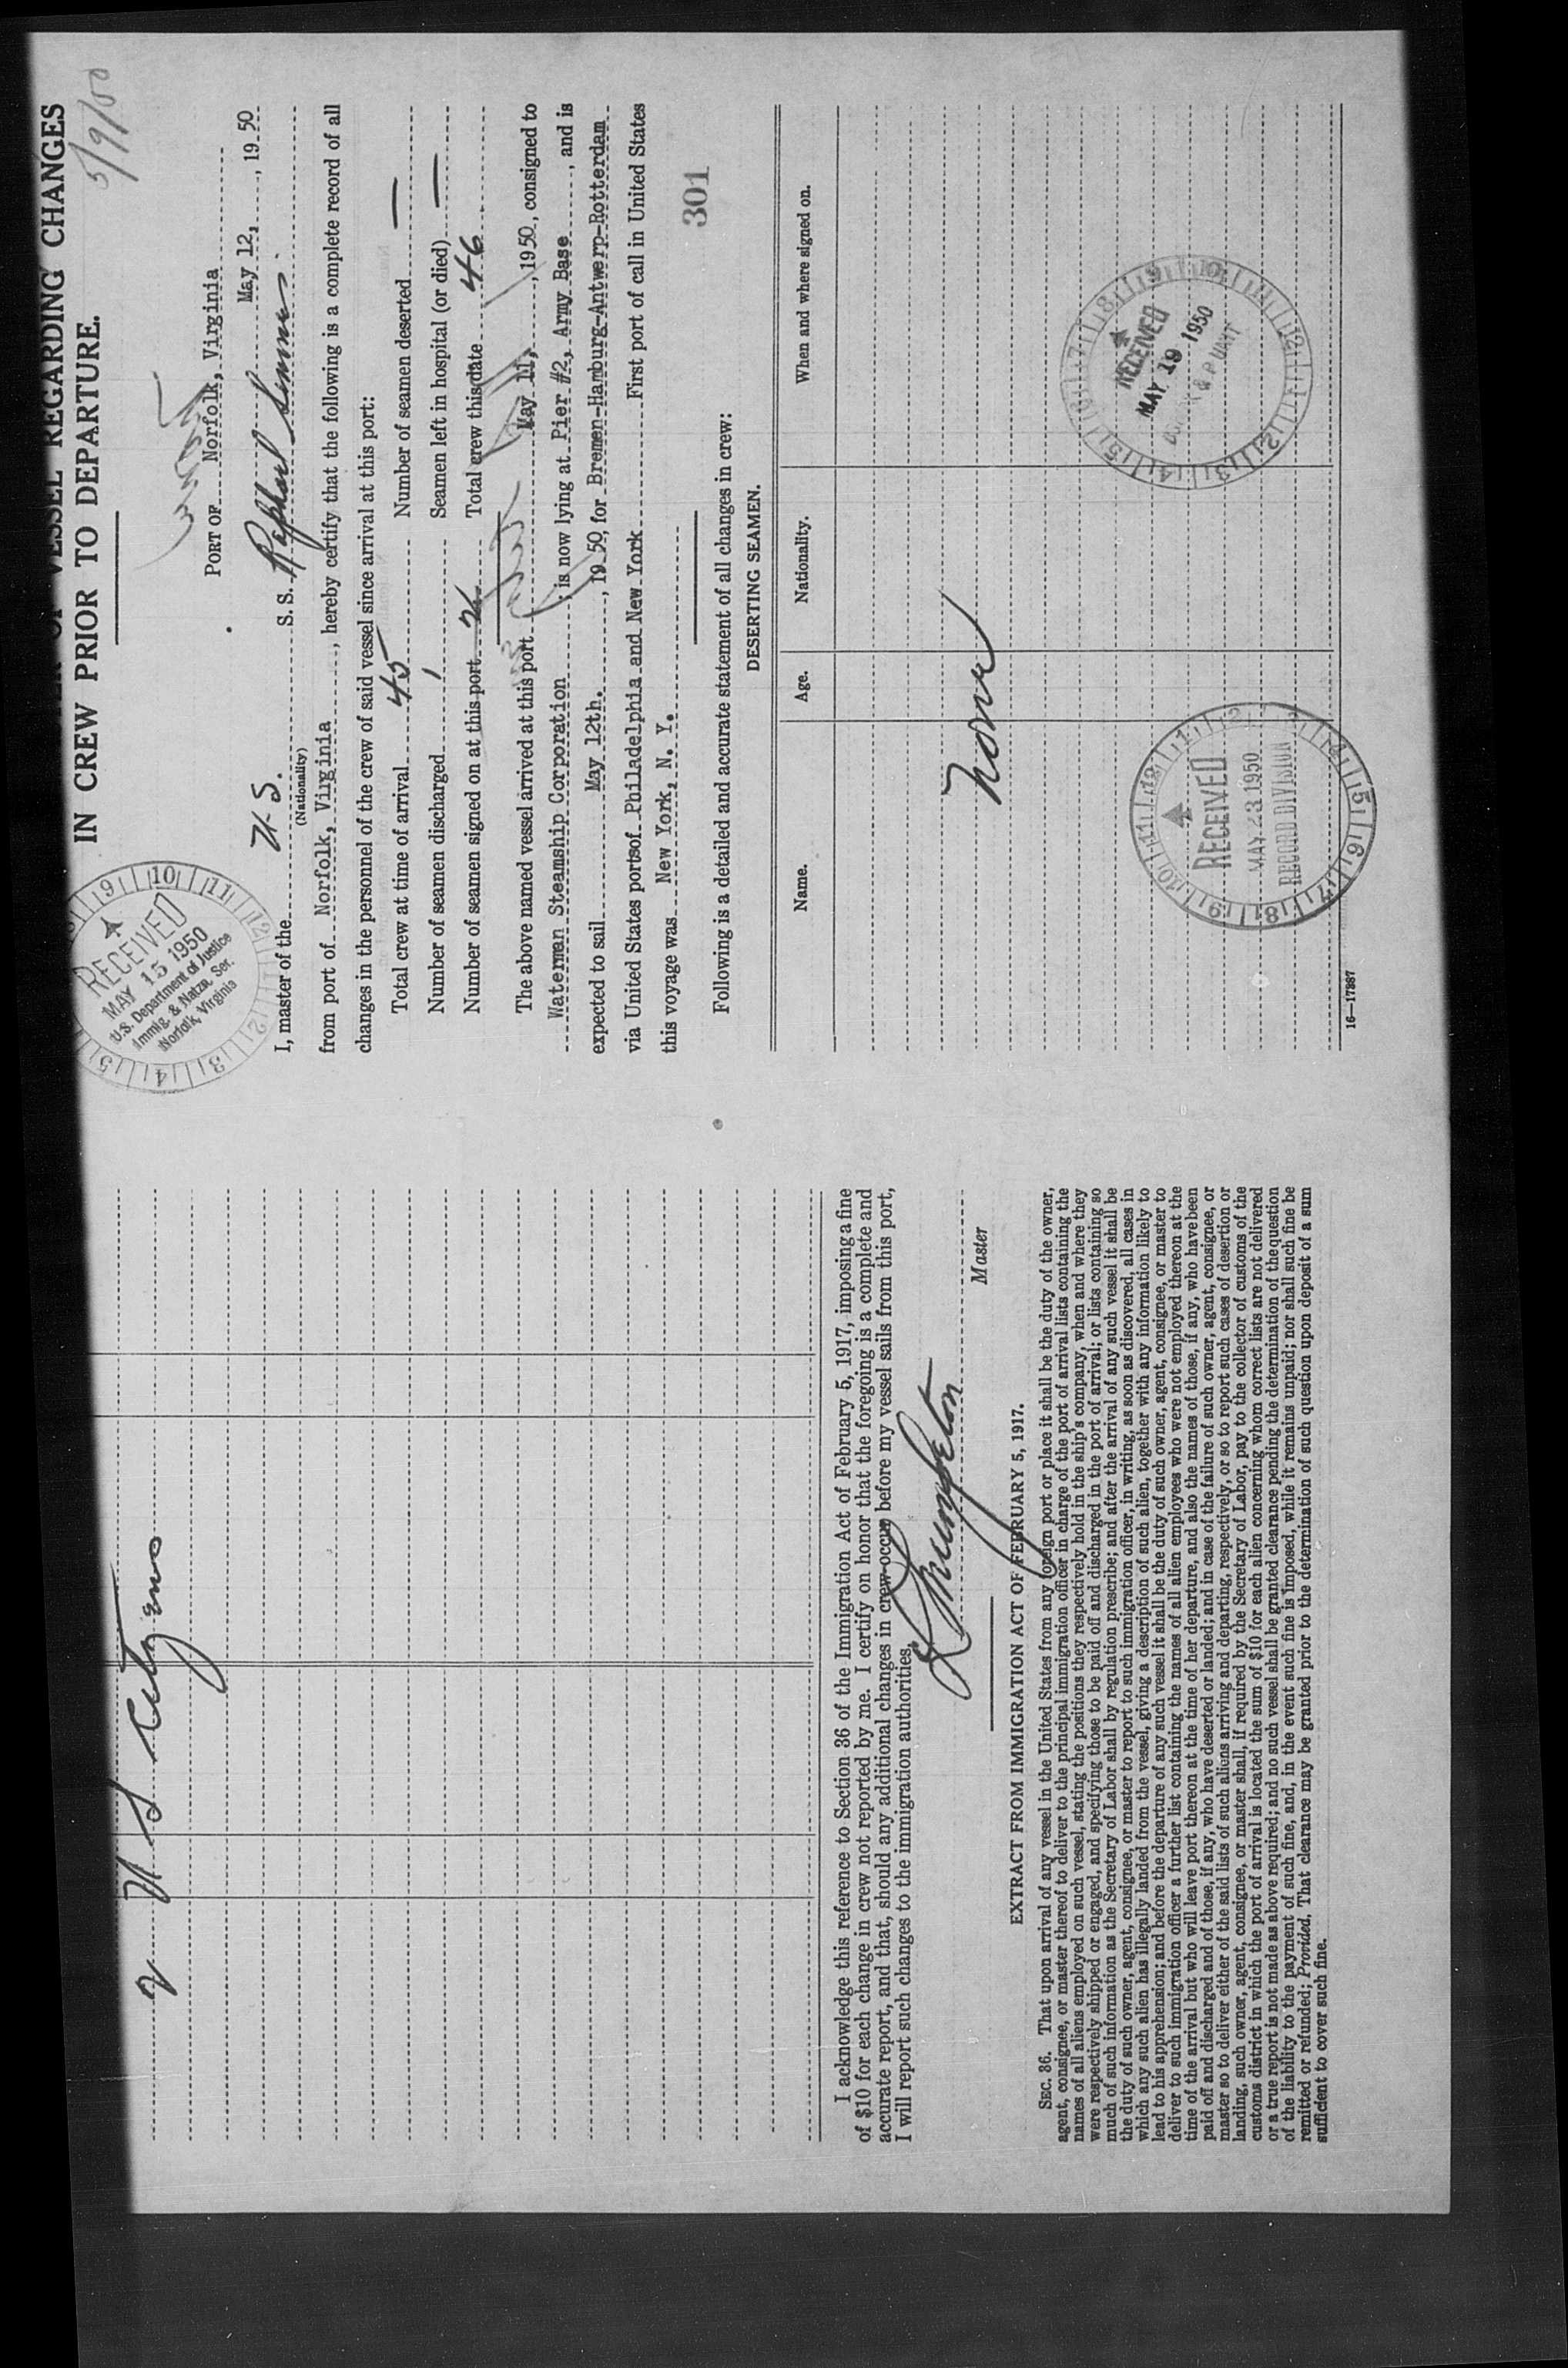 OF VESSEL REGARDING CHANGES
IN CREW PRIOR TO DEPARTURE.
5/9/50
RECEIVED
MAY 15 1950
U.S. Department of Justice
Immig. & Natzn. Ser.
Norfolk, Virginia
PORT OF Norfolk, Virginia
May 12, , 19 50
I, master of the U.S. S. S. Raphael Semmes
(Nationality)
from port of Norfolk, Virginia , hereby certify that the following is a complete record of all
changes in the personnel of the crew of said vessel since arrival at this port:
Total crew at time of arrival 45 Number of seamen deserted —
Number of seamen discharged 1 Seamen left in hospital (or died) —
Number of seamen signed on at this port 2 Total crew this date 46
The above named vessel arrived at this port May 11, , 1950, consigned to
Waterman Steamship Corporation ; is now lying at Pier #2, Army Base , and is
expected to sail May 12th. , 19 50, for Bremen-Hamburg-Antwerp-Rotterdam
via United States ports of Philadelphia and New York First port of call in United States
this voyage was New York, N. Y.
301
Following is a detailed and accurate statement of all changes in crew:
DESERTING SEAMEN.
Name. Age. Nationality. When and where signed on.
None
RECEIVED
MAY 19 1950
RECEIVED
MAY 23 1950
RECORD DIVISION
16—17387
2 U S Citizens
I acknowledge this reference to Section 36 of the Immigration Act of February 5, 1917, imposing a fine
of $10 for each change in crew not reported by me. I certify on honor that the foregoing is a complete and
accurate report, and that, should any additional changes in crew occur before my vessel sails from this port,
I will report such changes to the immigration authorities.
Master
EXTRACT FROM IMMIGRATION ACT OF FEBRUARY 5, 1917.
SEC. 36. That upon arrival of any vessel in the United States from any foreign port or place it shall be the duty of the owner,
agent, consignee, or master thereof to deliver to the principal immigration officer in charge of the port of arrival lists containing the
names of all aliens employed on such vessel, stating the positions they respectively hold in the ship's company, when and where they
were respectively shipped or engaged, and specifying those to be paid off and discharged in the port of arrival; or lists containing so
much of such information as the Secretary of Labor shall by regulation prescribe; and after the arrival of any such vessel it shall be
the duty of such owner, agent, consignee, or master to report to such immigration officer, in writing, as soon as discovered, all cases in
which any such alien has illegally landed from the vessel, giving a description of such alien, together with any information likely to
lead to his apprehension; and before the departure of any such vessel it shall be the duty of such owner, agent, consignee, or master to
deliver to such immigration officer a further list containing the names of all alien employees who were not employed thereon at the
time of the arrival but who will leave port thereon at the time of her departure, and also the names of those, if any, who have been
paid off and discharged and of those, if any, who have deserted or landed; and in case of the failure of such owner, agent, consignee, or
master so to deliver either of the said lists of such aliens arriving and departing, respectively, or so to report such cases of desertion or
landing, such owner, agent, consignee, or master shall, if required by the Secretary of Labor, pay to the collector of customs of the
customs district in which the port of arrival is located the sum of $10 for each alien concerning whom correct lists are not delivered
or a true report is not made as above required; and no such vessel shall be granted clearance pending the determination of the question
of the liability to the payment of such fine, and, in the event such fine is imposed, while it remains unpaid; nor shall such fine be
remitted or refunded; Provided, That clearance may be granted prior to the determination of such question upon deposit of a sum
sufficient to cover such fine.